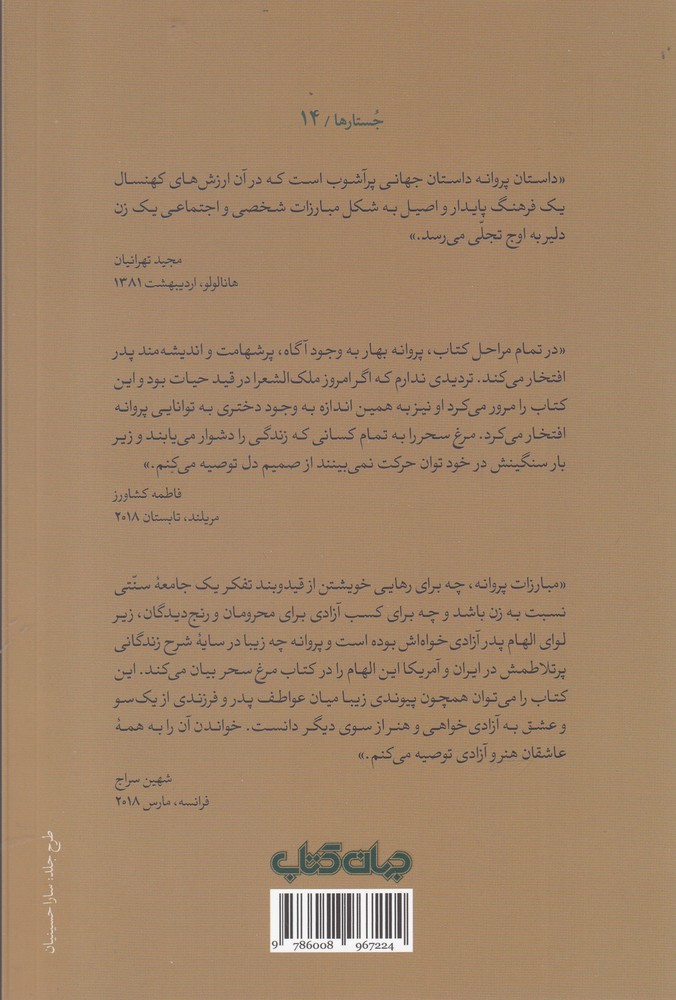 جُستارها / ۱۴
«داستان پروانه داستان جهانی پرآشوب است که در آن ارزش‌های کهنسال
یک فرهنگ پایدار و اصیل به شکل مبارزات شخصی و اجتماعی یک زن
دلیر به اوج تجلّی می‌رسد.»
مجید تهرانیان
هانالولو، اردیبهشت ۱۳۸۱
«در تمام مراحل کتاب، پروانه بهار به وجود آگاه، پرشهامت و اندیشه‌مند پدر
افتخار می‌کند. تردیدی ندارم که اگر امروز ملک‌الشعرا در قید حیات بود و این
کتاب را مرور می‌کرد او نیز به همین اندازه به وجود دختری به توانایی پروانه
افتخار می‌کرد. مرغ سحر را به تمام کسانی که زندگی را دشوار می‌یابند و زیر
بار سنگینش در خود توان حرکت نمی‌بینند از صمیم دل توصیه می‌کنم.»
فاطمه کشاورز
مریلند، تابستان ۲۰۱۸
«مبارزات پروانه، چه برای رهایی خویشتن از قیدوبند تفکر یک جامعهٔ سنّتی
نسبت به زن باشد و چه برای کسب آزادی برای محرومان و رنج‌دیدگان، زیر
لوای الهام پدر آزادی خواه‌اش بوده است و پروانه چه زیبا در سایهٔ شرح زندگانی
پرتلاطمش در ایران و آمریکا این الهام را در کتاب مرغ سحر بیان می‌کند. این
کتاب را می‌توان همچون پیوندی زیبا میان عواطف پدر و فرزندی از یک‌سو
و عشق به آزادی‌خواهی و هنر از سوی دیگر دانست. خواندن آن را به همهٔ
عاشقان هنر و آزادی توصیه می‌کنم.»
شهین سراج
فرانسه، مارس ۲۰۱۸
طرح جلد: سارا حسینیان
جهان کتاب
9 786008 967224